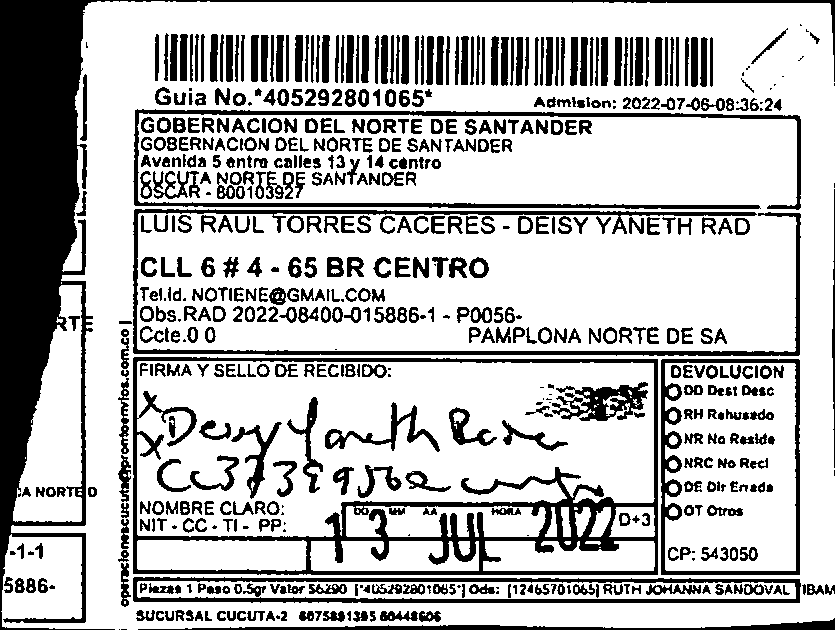 Guia No.*405292801065*
Admision: 2022-07-06-08:36:24
GOBERNACION DEL NORTE DE SANTANDER
GOBERNACION DEL NORTE DE SANTANDER
Avenida 5 entre calles 13 y 14 centro
CUCUTA NORTE DE SANTANDER
OSCAR - 800103927
LUIS RAUL TORRES CACERES - DEISY YANETH RAD
CLL 6 # 4 - 65 BR CENTRO
Tel.Id. NOTIENE@GMAIL.COM
Obs.RAD 2022-08400-015886-1 - P0056-
Ccte.0 0 PAMPLONA NORTE DE SA
RTE
operacionescucuta@prontoenvios.com.co
FIRMA Y SELLO DE RECIBIDO:
DEVOLUCION
DD Dest Desc
RH Rehusado
NR No Reside
NRC No Recl
DE Dir Errada
OT Otros
X
X Deisy Yaneth
CC 37
CA NORTE D
NOMBRE CLARO:
NIT - CC - TI - PP:
DD MM AA HORA D+3
13 JUL 2022
CP: 543050
-1-1
5886-
Piezas 1 Peso 0.5gr Valor $6290 [*405292801065*] Ods: [12465701065] RUTH JOHANNA SANDOVAL TIBAM
SUCURSAL CUCUTA-2 6075891395 60448606